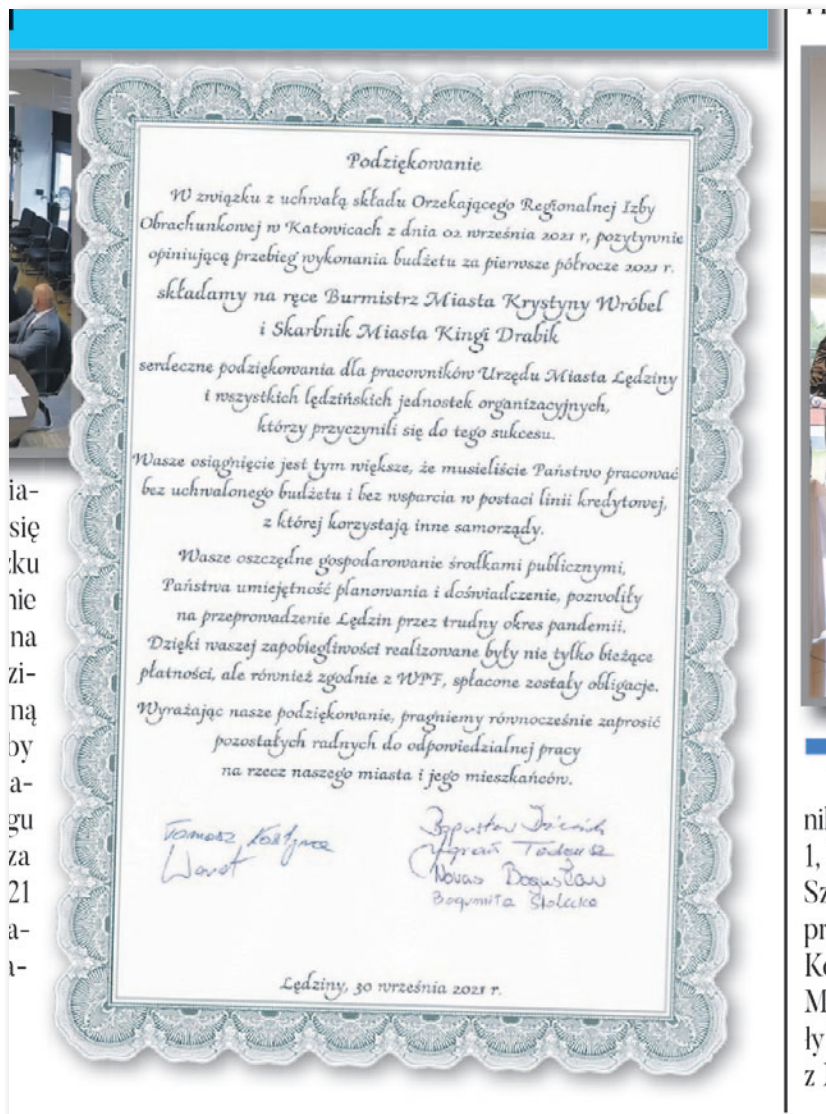 ia-
się
zku
nie
na
zi-
ną
by
a-
gu
za
21
a-
a-
Podziękowanie
W związku z uchwałą składu Orzekającego Regionalnej Izby
Obrachunkowej w Katowicach z dnia 02 września 2021 r, pozytywnie
opiniującą przebieg wykonania budżetu za pierwsze półrocze 2021 r.
składamy na ręce Burmistrz Miasta Krystyny Wróbel
i Skarbnik Miasta Kingi Drabik
serdeczne podziękowania dla pracowników Urzędu Miasta Lędziny
i wszystkich lędzińskich jednostek organizacyjnych,
którzy przyczynili się do tego sukcesu.
Wasze osiągnięcie jest tym większe, że musieliście Państwo pracować
bez uchwalonego budżetu i bez wsparcia w postaci linii kredytowej,
z której korzystają inne samorządy.
Wasze oszczędne gospodarowanie środkami publicznymi,
Państwa umiejętność planowania i doświadczenie, pozwoliły
na przeprowadzenie Lędzin przez trudny okres pandemii.
Dzięki waszej zapobiegliwości realizowane były nie tylko bieżące
płatności, ale również zgodnie z WPF, spłacone zostały obligacje.
Wyrażając nasze podziękowanie, pragniemy równocześnie zaprosić
pozostałych radnych do odpowiedzialnej pracy
na rzecz naszego miasta i jego mieszkańców.
Tomasz
Tadeusz
Bogusław
Bogumiła
Lędziny, 30 września 2021 r.
nil
1,
Sz
pr
Ko
M
ły
z